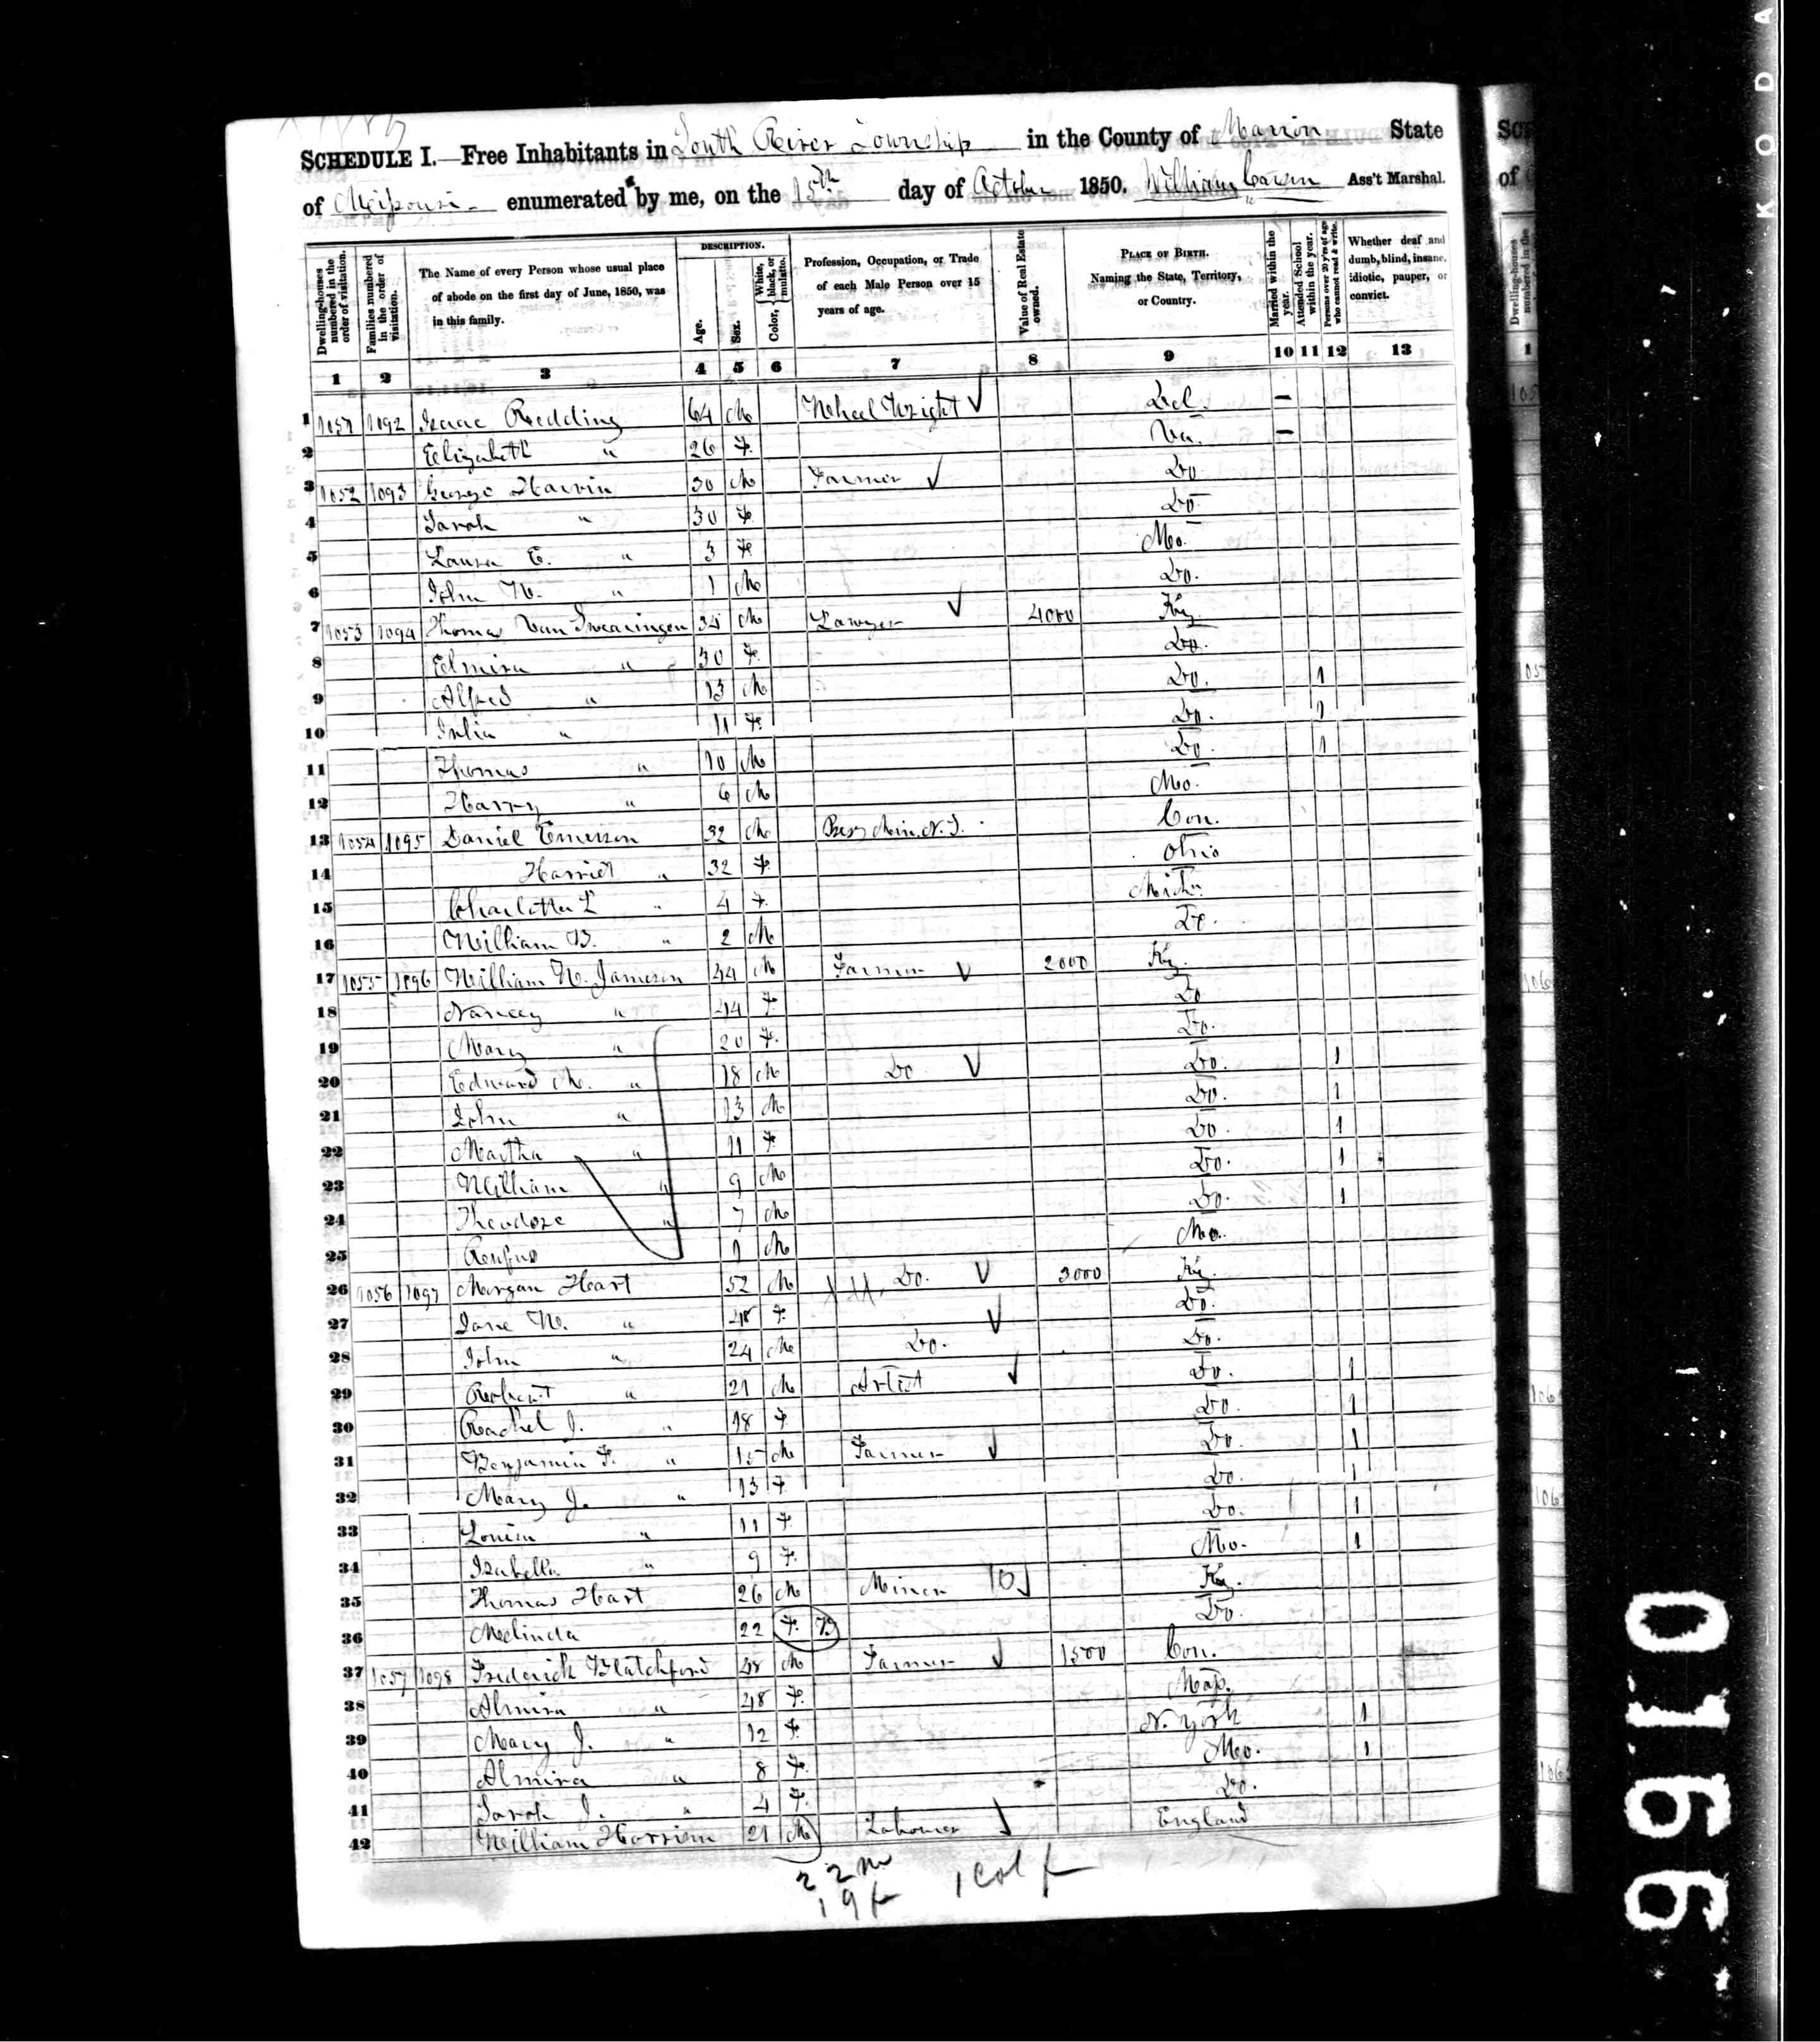 SCHEDULE I.—Free Inhabitants in South River Township in the County of Marion State
of Missouri enumerated by me, on the 15th day of October 1850. William Carson Ass't Marshal.
Dwelling-houses numbered in the order of visitation.
Families numbered in the order of visitation.
The Name of every Person whose usual place of abode on the first day of June, 1850, was in this family.
DESCRIPTION.
Age.
Sex.
Color, White, black, or mulatto.
Profession, Occupation, or Trade of each Male Person over 15 years of age.
Value of Real Estate owned.
PLACE OF BIRTH. Naming the State, Territory, or Country.
Married within the year.
Attended School within the year.
Persons over 20 y'rs of age who cannot read & write.
Whether deaf and dumb, blind, insane, idiotic, pauper, or convict.
1 2 3 4 5 6 7 8 9 10 11 12 13
1 1051 1092 Isaac Redding 64 M Wheel Wright Del. –
2 Elizabeth " 26 F. Va. –
3 1052 1093 George Harvin 30 M Farmer Do
4 Sarah " 30 F. Do
5 Laura E. " 3 F Mo.
6 John W. " 1 M Do.
7 1053 1094 Thomas Van Swearingen 34 M Lawyer 4000 Ky
8 Elmira " 30 F. Do.
9 Alfred " 13 M Do. 1
10 Julia " 11 F. Do. 1
11 Thomas " 10 M Do. 1
12 Harry " 6 M Mo.
13 1054 1095 Daniel Emerson 32 M Presy Min. N.S. Con.
14 Harriet " 32 F. Ohio
15 Charlotte L " 4 F. Mich.
16 William B. " 2 M Do.
17 1055 1096 William W. Jameson 44 M Farmer 2000 Ky.
18 Nancy " 44 F. Do
19 Mary " 20 F. Do.
20 Edward M. " 18 M Do Do. 1
21 John " 13 M Do. 1
22 Martha " 11 F. Do. 1
23 William " 9 M Do. 1
24 Theodore " 7 M Do. 1
25 Rufus 1 M Mo.
26 1056 1097 Morgan Heart 52 M Do. 3000 Ky.
27 Jane W. " 48 F. Do.
28 John " 24 M Do. Do.
29 Robert " 21 M Artist Do. 1
30 Rachel J. " 18 F Do. 1
31 Benjamin F. " 15 M Farmer Do. 1
32 Mary J. " 13 F. Do. 1
33 Louisa " 11 F. Do. 1
34 Izabella " 9 F. Mo. 1
35 Thomas Hart 26 M Miner 10 Ky.
36 Melinda 22 F. B Do.
37 1057 1098 Frederick Blatchford 48 M Farmer 1500 Con.
38 Almira " 48 F. Mass.
39 Mary J. " 12 F. N. York 1
40 Almira " 8 F. Mo. 1
41 Sarah J. " 4 F. Do.
42 William Harrison 21 M Labourer England
22 m
19 f 1 Col f
0166
KODA